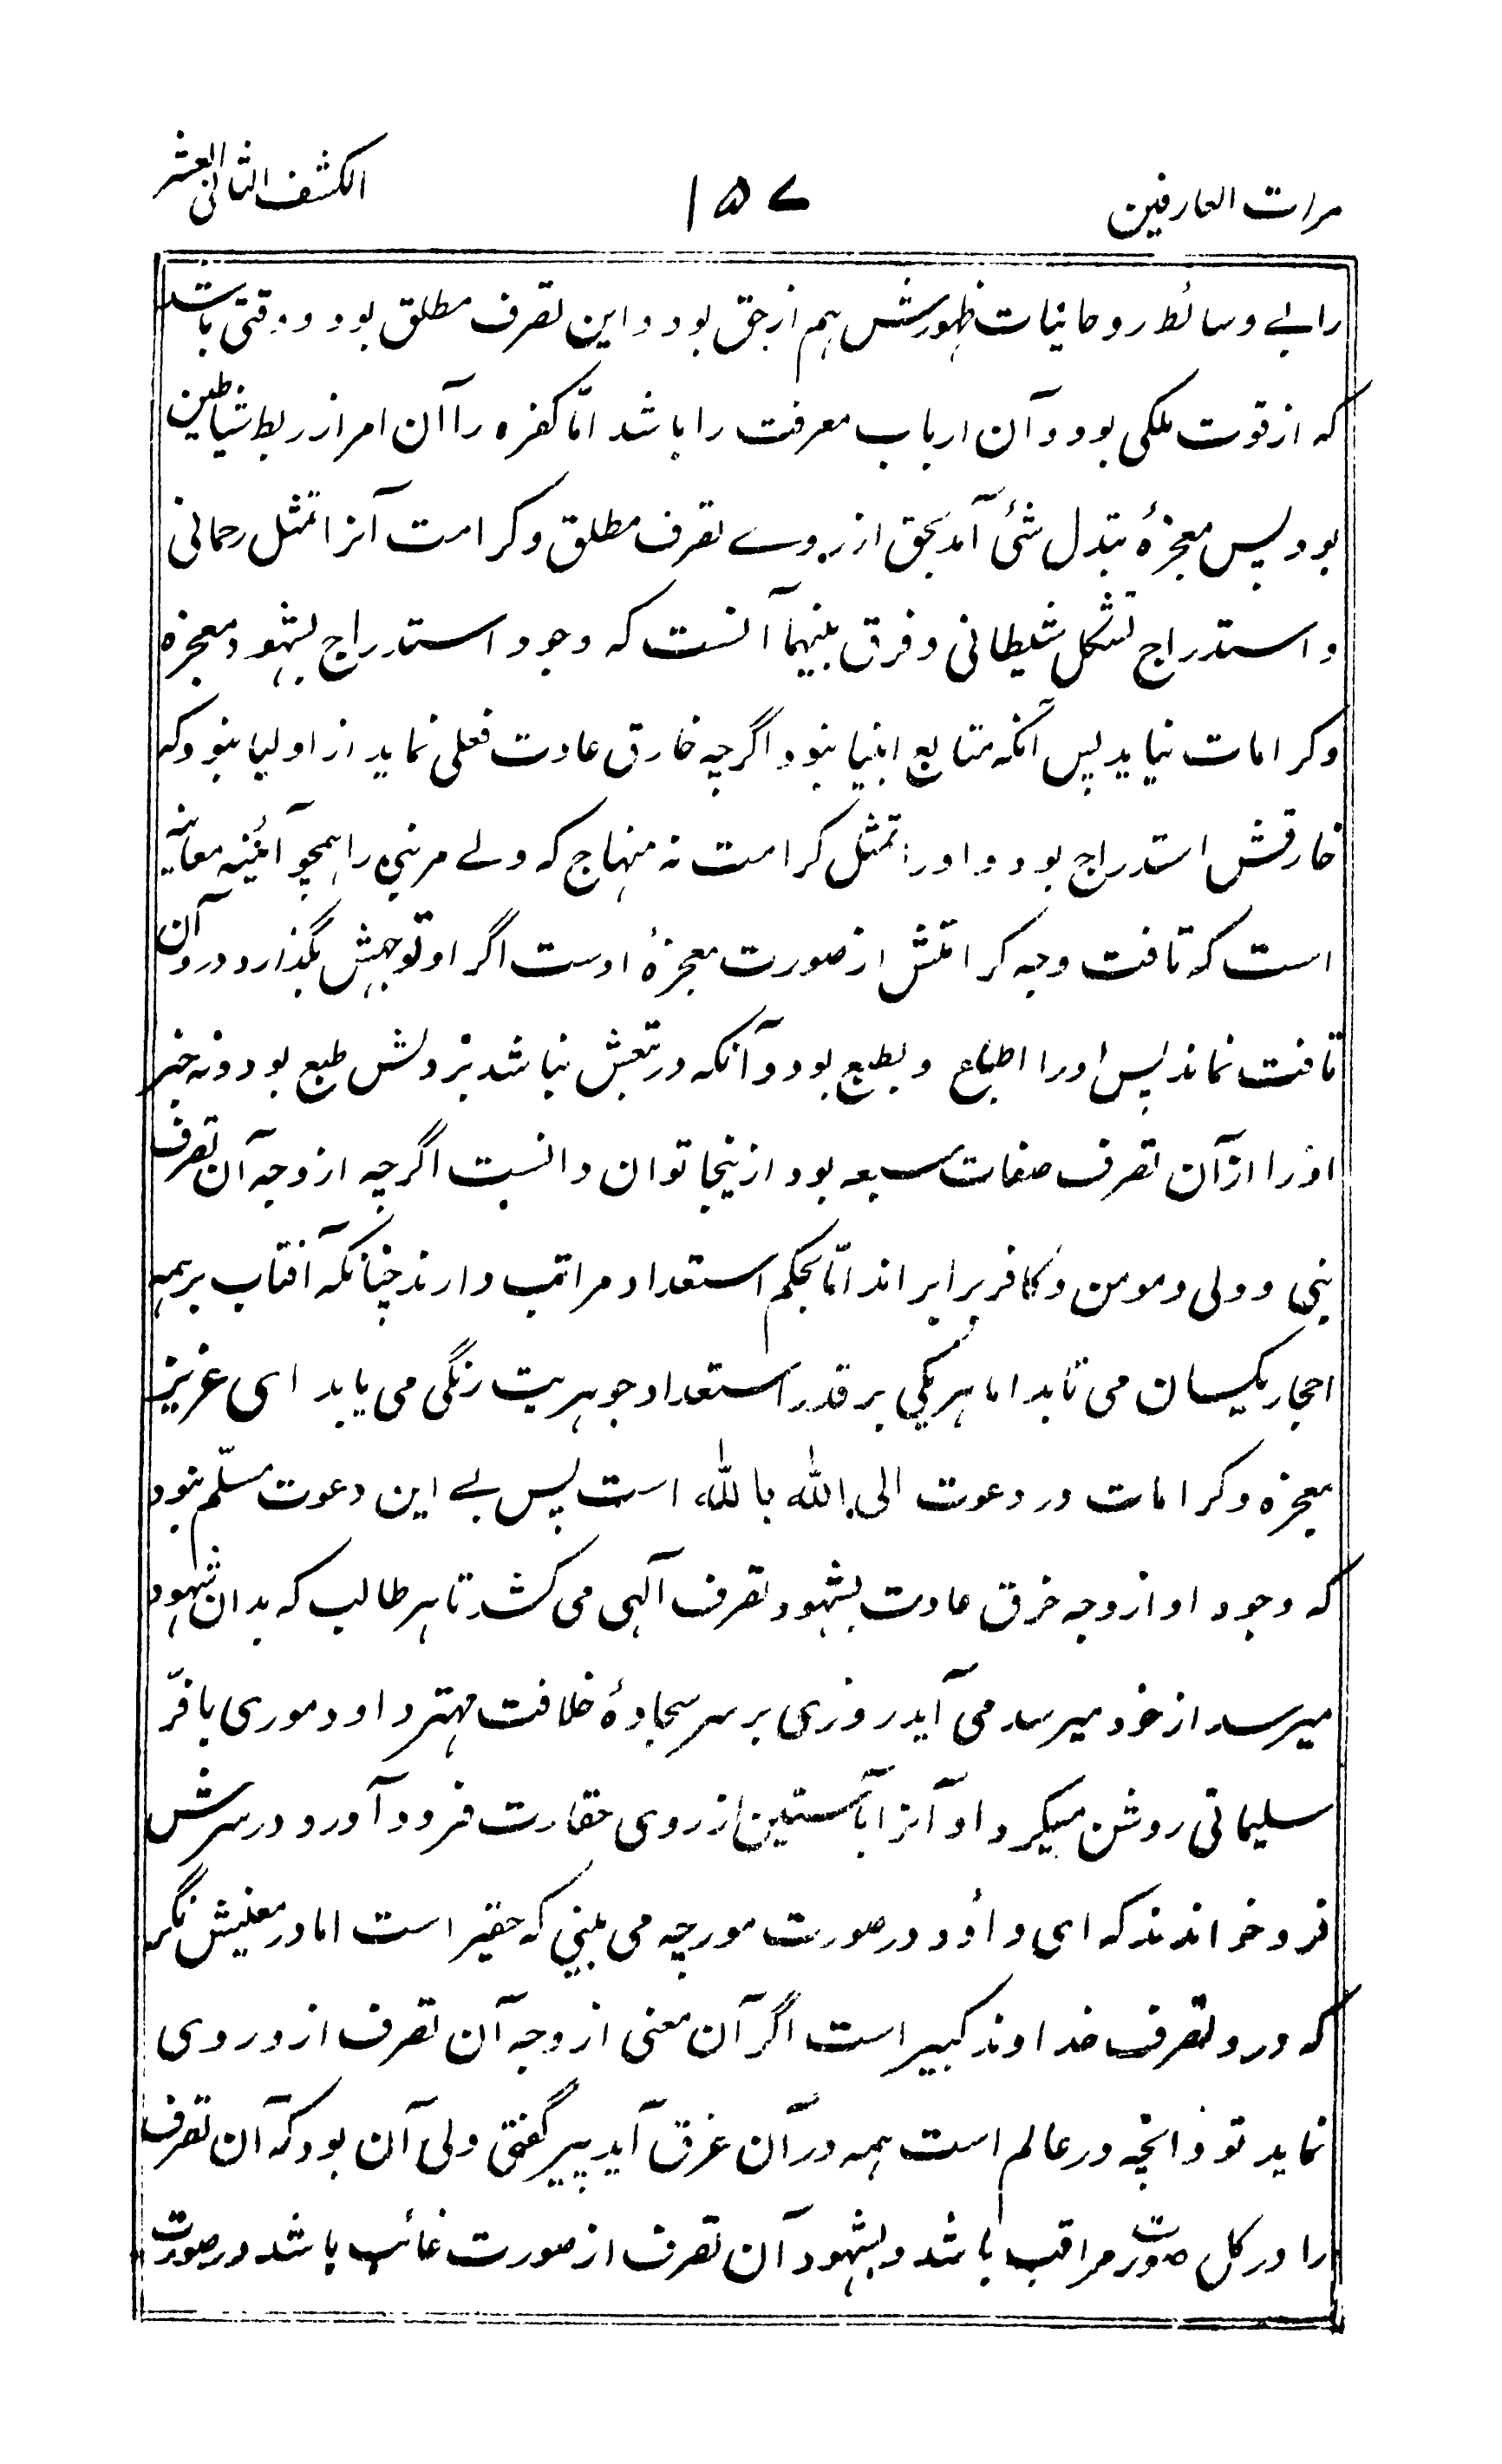 مرات العارفین
۱۵۷
الکشف الثانی العشر
را بے وسائط روحانیات ظہورش ہم از حق بود و این تصرف مطلق بود و وقتی باشد
کہ از قوت ملکی بود و آن ارباب معرفت را باشد امّا کفرہ را آن امر از ربط شیاطین
بود پس معجزۂ تبدل شیٔ آمد بحق از روے تصرف مطلق و کرامت آنرا تمثل رحمانی
و استدراج تشکل شیطانی و فرق بینہما آنست کہ وجود استدراج بشہود معجزہ
و کرامات نیاید پس آنکہ متابع انبیا نبود اگرچہ خارق عادت فعلی نماید از اولیا نبود کہ
خارقش استدراج بود و اورا تمثل کرامت نہ منہاج کہ ولے مر نبی را ہمچو آئینہ معائنہ
است کہ تافت وجہ کرامتش از صورت معجزۂ اوست اگر او توجہش بگذارد درو آن
تافت نماند پس اورا اطباع و بطبع بود و آنکہ در تبعش نباشد نزولش طبع بود و نہ خبر
اورا از آن تصرف صفات سبعہ بود ازینجا توان دانست اگرچہ از وجہ آن تصرف
نبی و ولی و مومن و کافر برابر اند امّا بحکم استعداد مراتب دارند چنانکہ آفتاب بر ہمہ
احجار یکسان می تابد اما ہر یکی بر قدر استعداد جوہریت رنگی می یابد ای عزیز
معجزہ و کرامات در دعوت الی اللّٰہ باللّٰہ است پس بے این دعوت مسلّم نبود
کہ وجود او از وجہ خرق عادت بشہود تصرف آلہی می کشد تا ہر طالب کہ بدان شہود
میرسد از خود میرسد می آید روزی بر سر سجادۂ خلافت مہتر داود موری با فرّ
سلیمانی روشن میکرد او آنرا بآستین از روی حقارت فرود آورد در سرش
فرو خواندند کہ ای داؤد در صورت مورچہ می بینی کہ حقیر است اما در معنیش نگر
کہ درو تصرف خداوند کبیر است اگر آن معنی از وجہ آن تصرف از و روی
نماید تو و انچہ در عالم است ہمہ در آن غرق آید پیر گفتی ولی آن بود کہ آن تصرف
را در کل صورت مراقب باشد و بشہود آن تصرف از صورت غائب باشد در صورت